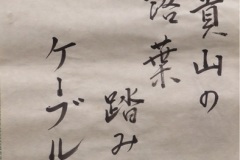 貴山の
落葉
踏み
ケーブル